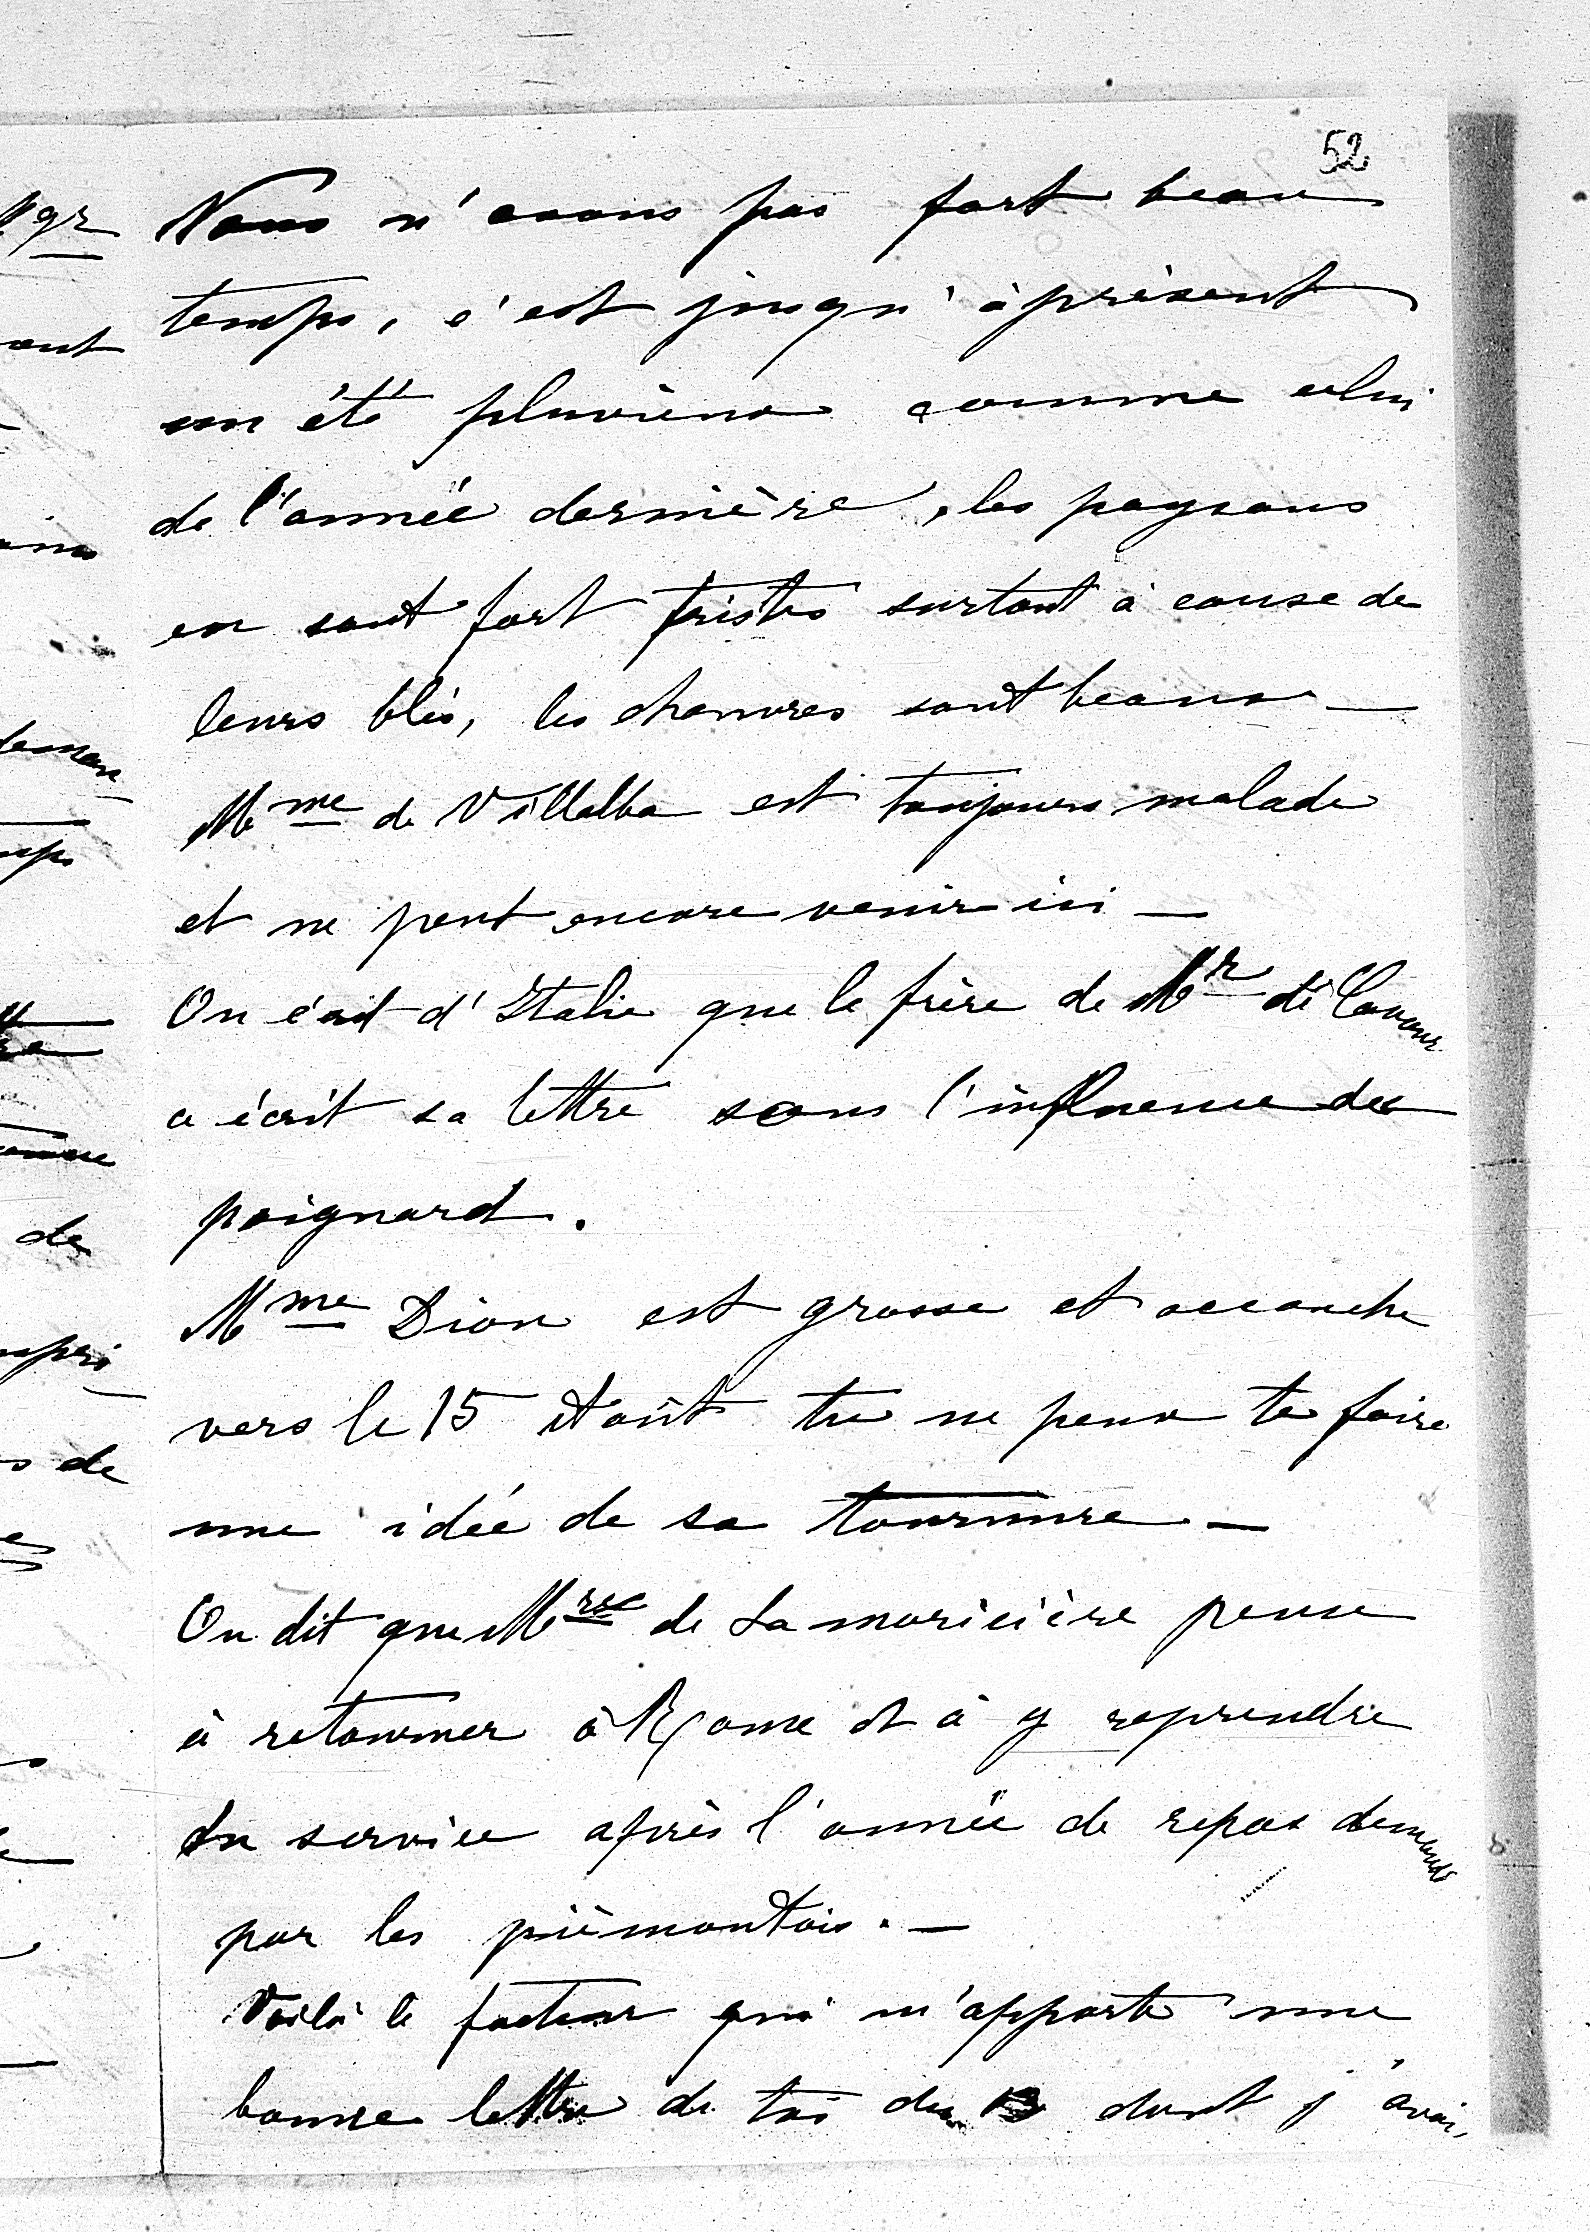 52
Nous n'avons pas fort beau
temps, c'est jusqu'à présent
un été pluvieux comme celui
de l'année dernière, les paysans
en sont fort tristes surtout à cause de
leurs blés, les chanvres sont beaux —
Mme de Villalba est toujours malade
et ne peut encore venir ici —
On écrit d'Italie que le frère de Mr de Cavour
a écrit sa lettre sous l'influence du
poignard.
Mme Dion est grosse et accouche
vers le 15 Août tu ne peux te faire
une idée de sa tournure —
On dit que de Lamoricière pense
à retourner à Rome et à y reprendre
du service après l'année de repos demandé
par les piémontais. —
Voilà le facteur qui m'apporte une
bonne lettre de toi du dont j'avais